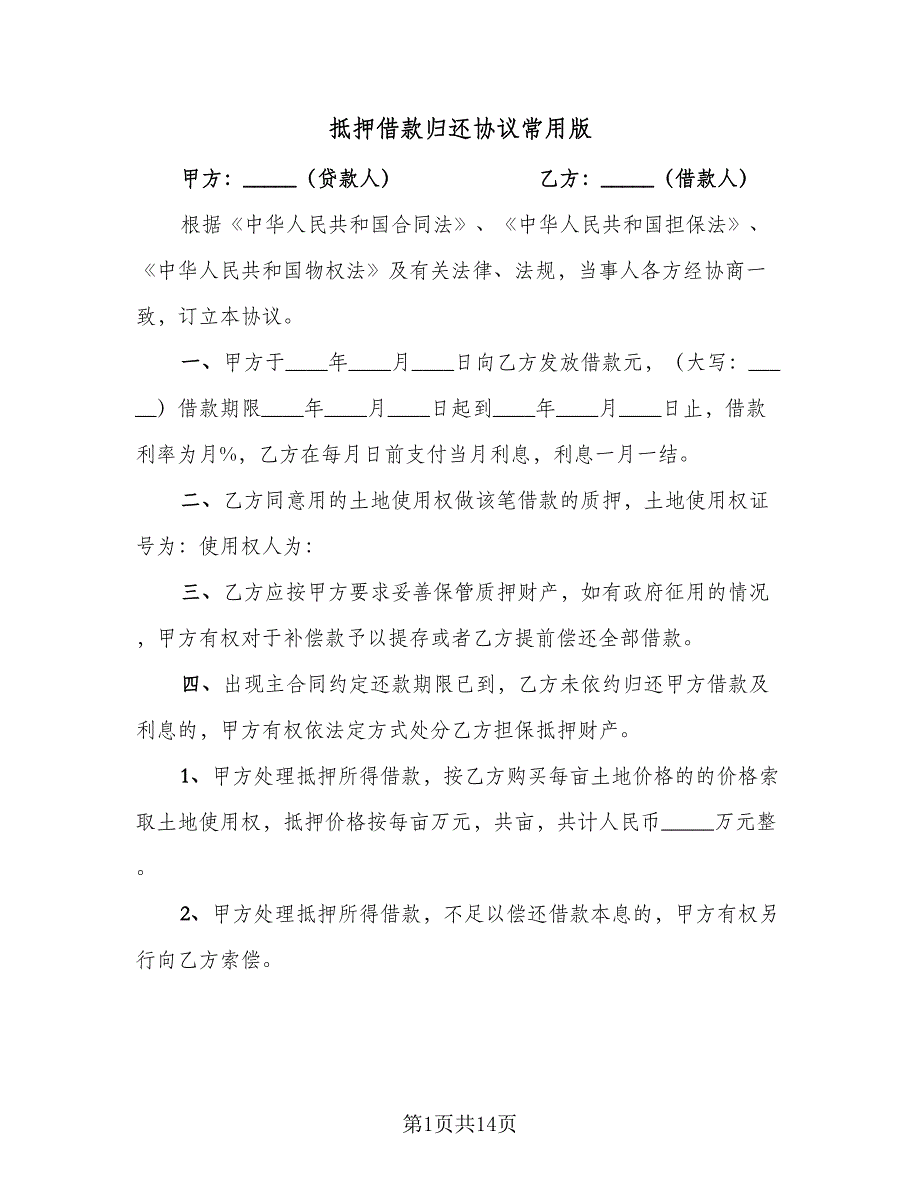 抵押借款归还协议常用版
甲方：_____（贷款人） 乙方：_____（借款人）
根据《中华人民共和国合同法》、《中华人民共和国担保法》、
《中华人民共和国物权法》及有关法律、法规，当事人各方经协商一
致，订立本协议。
一、甲方于____年____月____日向乙方发放借款元，（大写：___
__）借款期限____年____月____日起到____年____月____日止，借款
利率为月%，乙方在每月日前支付当月利息，利息一月一结。
二、乙方同意用的土地使用权做该笔借款的质押，土地使用权证
号为：使用权人为：
三、乙方应按甲方要求妥善保管质押财产，如有政府征用的情况
，甲方有权对于补偿款予以提存或者乙方提前偿还全部借款。
四、出现主合同约定还款期限已到，乙方未依约归还甲方借款及
利息的，甲方有权依法定方式处分乙方担保抵押财产。
1、甲方处理抵押所得借款，按乙方购买每亩土地价格的的价格索
取土地使用权，抵押价格按每亩万元，共亩，共计人民币_____万元整
。
2、甲方处理抵押所得借款，不足以偿还借款本息的，甲方有权另
行向乙方索偿。
第1页共14页